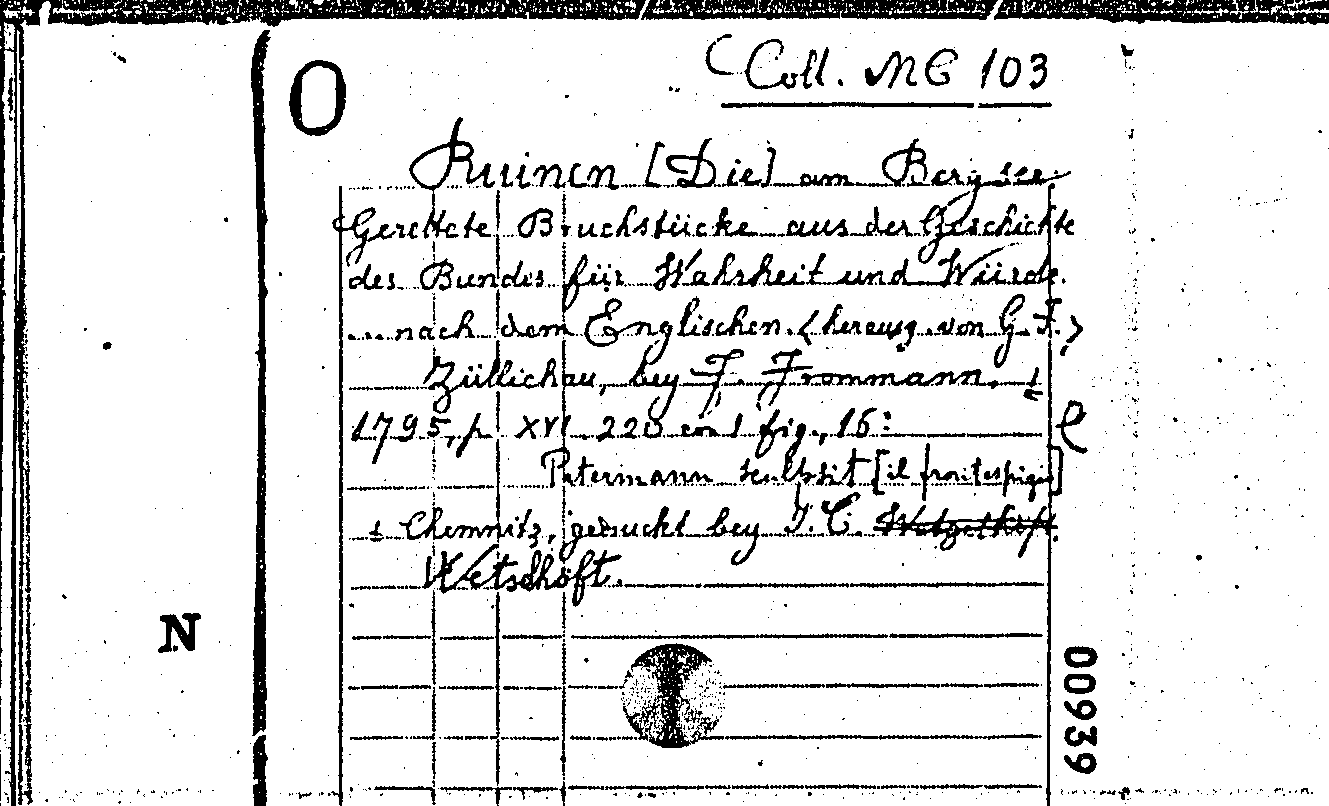 O
Coll. MC 103
Ruinen [Die] am Bergsee.
Gerettete Bruchstücke aus der Geschichte
des Bundes für Wahrheit und Würde.
... nach dem Englischen. < herausg. von G. F. >
Züllichau, bey F. Frommann.
1795, p XVI 220 con 1 fig., 16:
Petermann sculpsit [il frontespizio]
Chemnitz, gedruckt bey J. C.
Wetschöft.
N
00939